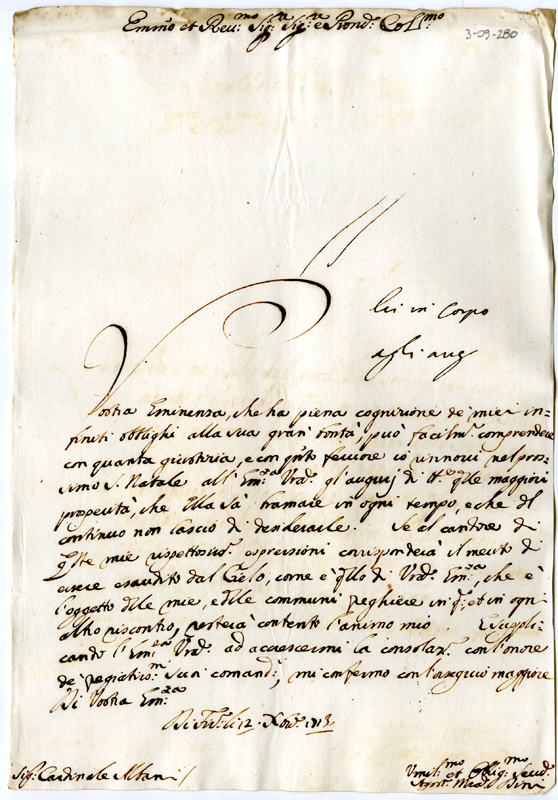 Emin͂o et Reu:mo Sig:r Sig:r e Prond: Coll:mo
3-09-280
lei in Corpo
agli aug
Vostra Eminenza, che ha piena cognizione de' miei in=
finiti obblighi alla sua gran bontà, può facilm: comprendere
con quanta giustizia, e con q̃to feruore io rinnoui nel pros=
simo S. Natale all' Em:za Vrã gl'augurj di t.te q̃lle maggiori
prosperità, che Ella sà bramare in ogni tempo, e che di
continuo non lascio di desiderarle. Se il candore di
q̃ste mie rispettosiss: espressioni corrisponderà il merito di
essere esaudito dal Cielo, come è q̃llo di Vrã Em:za, che è
l'oggetto delle mie, e delle communi preghiere in q̃: et in ogni
altro riscontro, resterà contento l'animo mio. E suppli=
cando l'Em:za Vrã ad accrescermi la consolaz: con l'onore
de' pregiatiss:mi Suoi comand:, mi confermo con l'ossequio maggiore
Di Vostra Em:za
12 Xbre 1713
Sig: Cardinale Albani
Vmil:mo et Oblig:mo Seru:
Bini